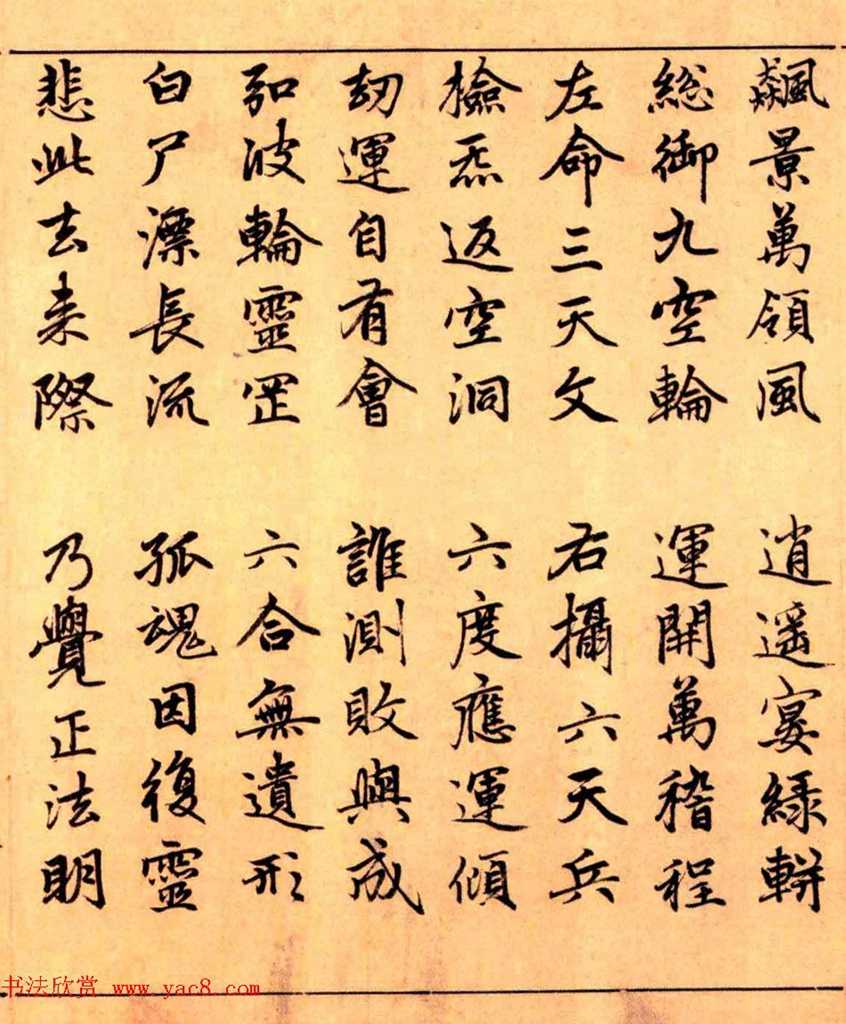 飇景萬領風 逍遥宴緑軿
総御九空輪 運開萬稽程
左命三天文 右攝六天兵
檢炁返空洞 六度應運傾
刼運自有會 誰測敗與成
弘波輪靈罡 六合無遺形
白尸漂長流 孤魂因復靈
悲此去来際 乃覺正法明
书法欣赏 www.yac8.com